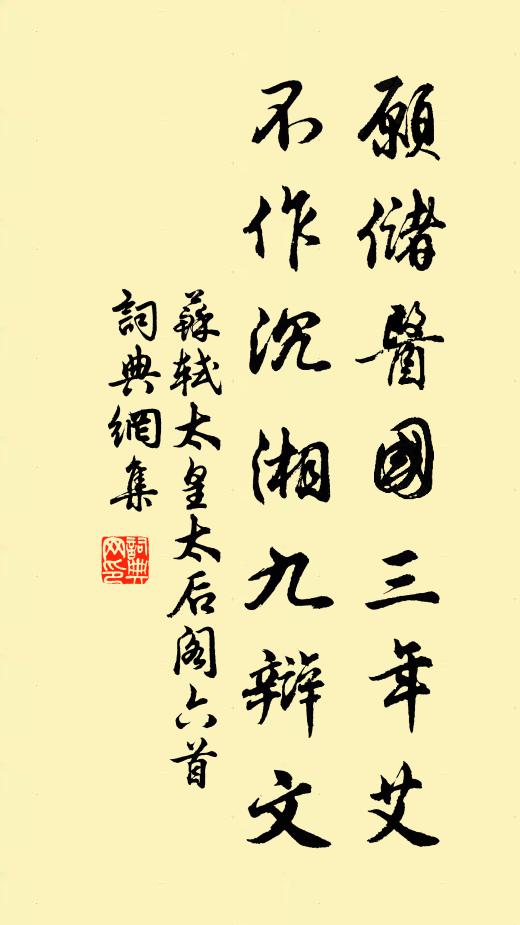 願儲醫國三年艾
不作沉湘九辯文
蘇軾太皇太后阁六首
詞典網集
詞典
网印